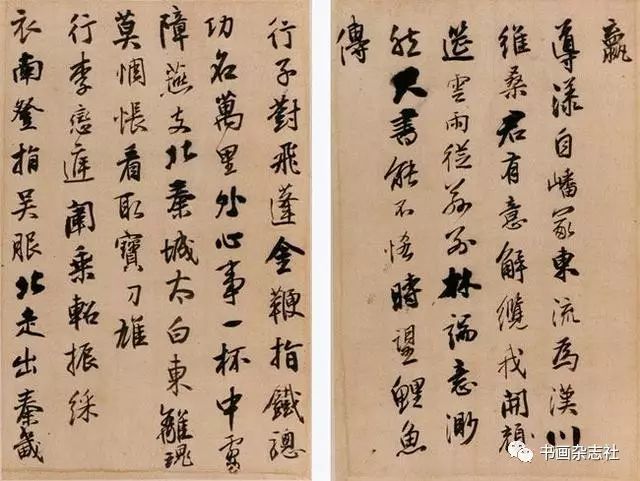 嬴
導漾自嶓冢東流為漢川
維桑君有意解纜我開顏
筵雲雨從茲別林端意渺
然尺書能不悋時望鯉魚
傳
行子對飛蓬金鞭指鐵驄
功名萬里外心事一杯中虜
障燕支北秦城太白東離魂
莫惆悵看取寶刀雄
行李戀庭闈乘軺振綵
衣南登指吳服北走出秦畿
书画杂志社